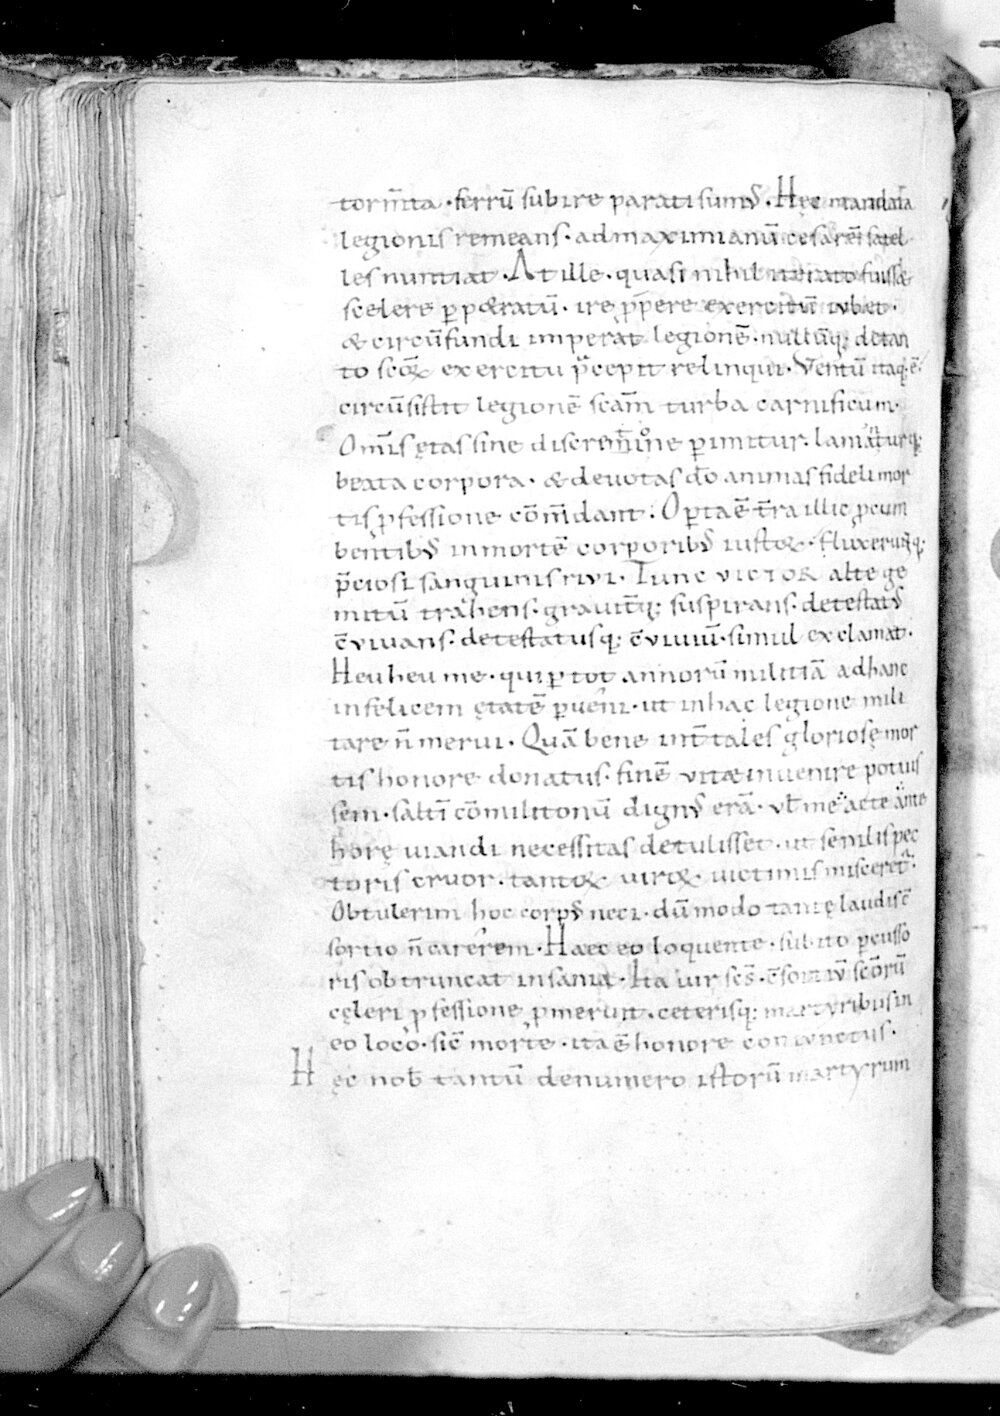 torm̄ta · ferrū subire parati sumꝰ · Hęc mandata
legionis remeans · ad maximianū cesarē satel
les nuntiat · At ille · quasi nihil iterato fuiss&
scelere ꝑp&ratū · ire p̄pere exercitū iubet ·
& circūfundi imperat legionē · nullūq; de tan
to scōꝝ exercitu p̄cepit relinqui · Ventū itaq; ē ·
circūsistit legionē scām̄ turba carnificum ·
Om̄is ętas sine discretione ꝑimitur · laniaturq;
beata corpora · & deuotas dō animas fideli mor
tis ꝓfessione cōm̄dant · Oꝑta ē t̄ra illic ꝓcum
bentibꝰ in mortē corporibꝰ iustoꝝ · fluxeruntq;
p̄ciosi sanguinis riui · Tunc VICTOR alte ge
mitū trahens · grauit̄q; suspirans · detestatꝰ
c̄viuans · detestatusq; c̄viuiū · simul exclamat ·
Heu heu me · qui ꝑ tot annorū militiā ad hanc
infelicem ętatē ꝑueni · ut in hac legione mili
tare n̄ merui · Quā bene int̄ tales gloriosę mor
tis honore donatus · finē vitæ inuenire potuis
sem · saltī cōmilitonū dignꝰ erā · vt̄ me acte ante
horę uiandi necessitas detulisset · ut senilis pec
toris cruor · tantoꝝ uiroꝝ uictimis misceret̄ ·
Obtulerim hoc corpꝰ neci · dū modo tantę laudis c̄
sortio n̄ carerem · Haec eo loquente · subito ꝑcusso
ris obtruncat insania · Ita uir scs̄ · c̄sortiū scōrū
cęleri ꝓfessione ꝓmeruit · ceterisq; martyribus in
eo loco · sic̄ morte · ita & honore coniunctus ·
Hęc nob̄ tantū de numero istorū martyrum